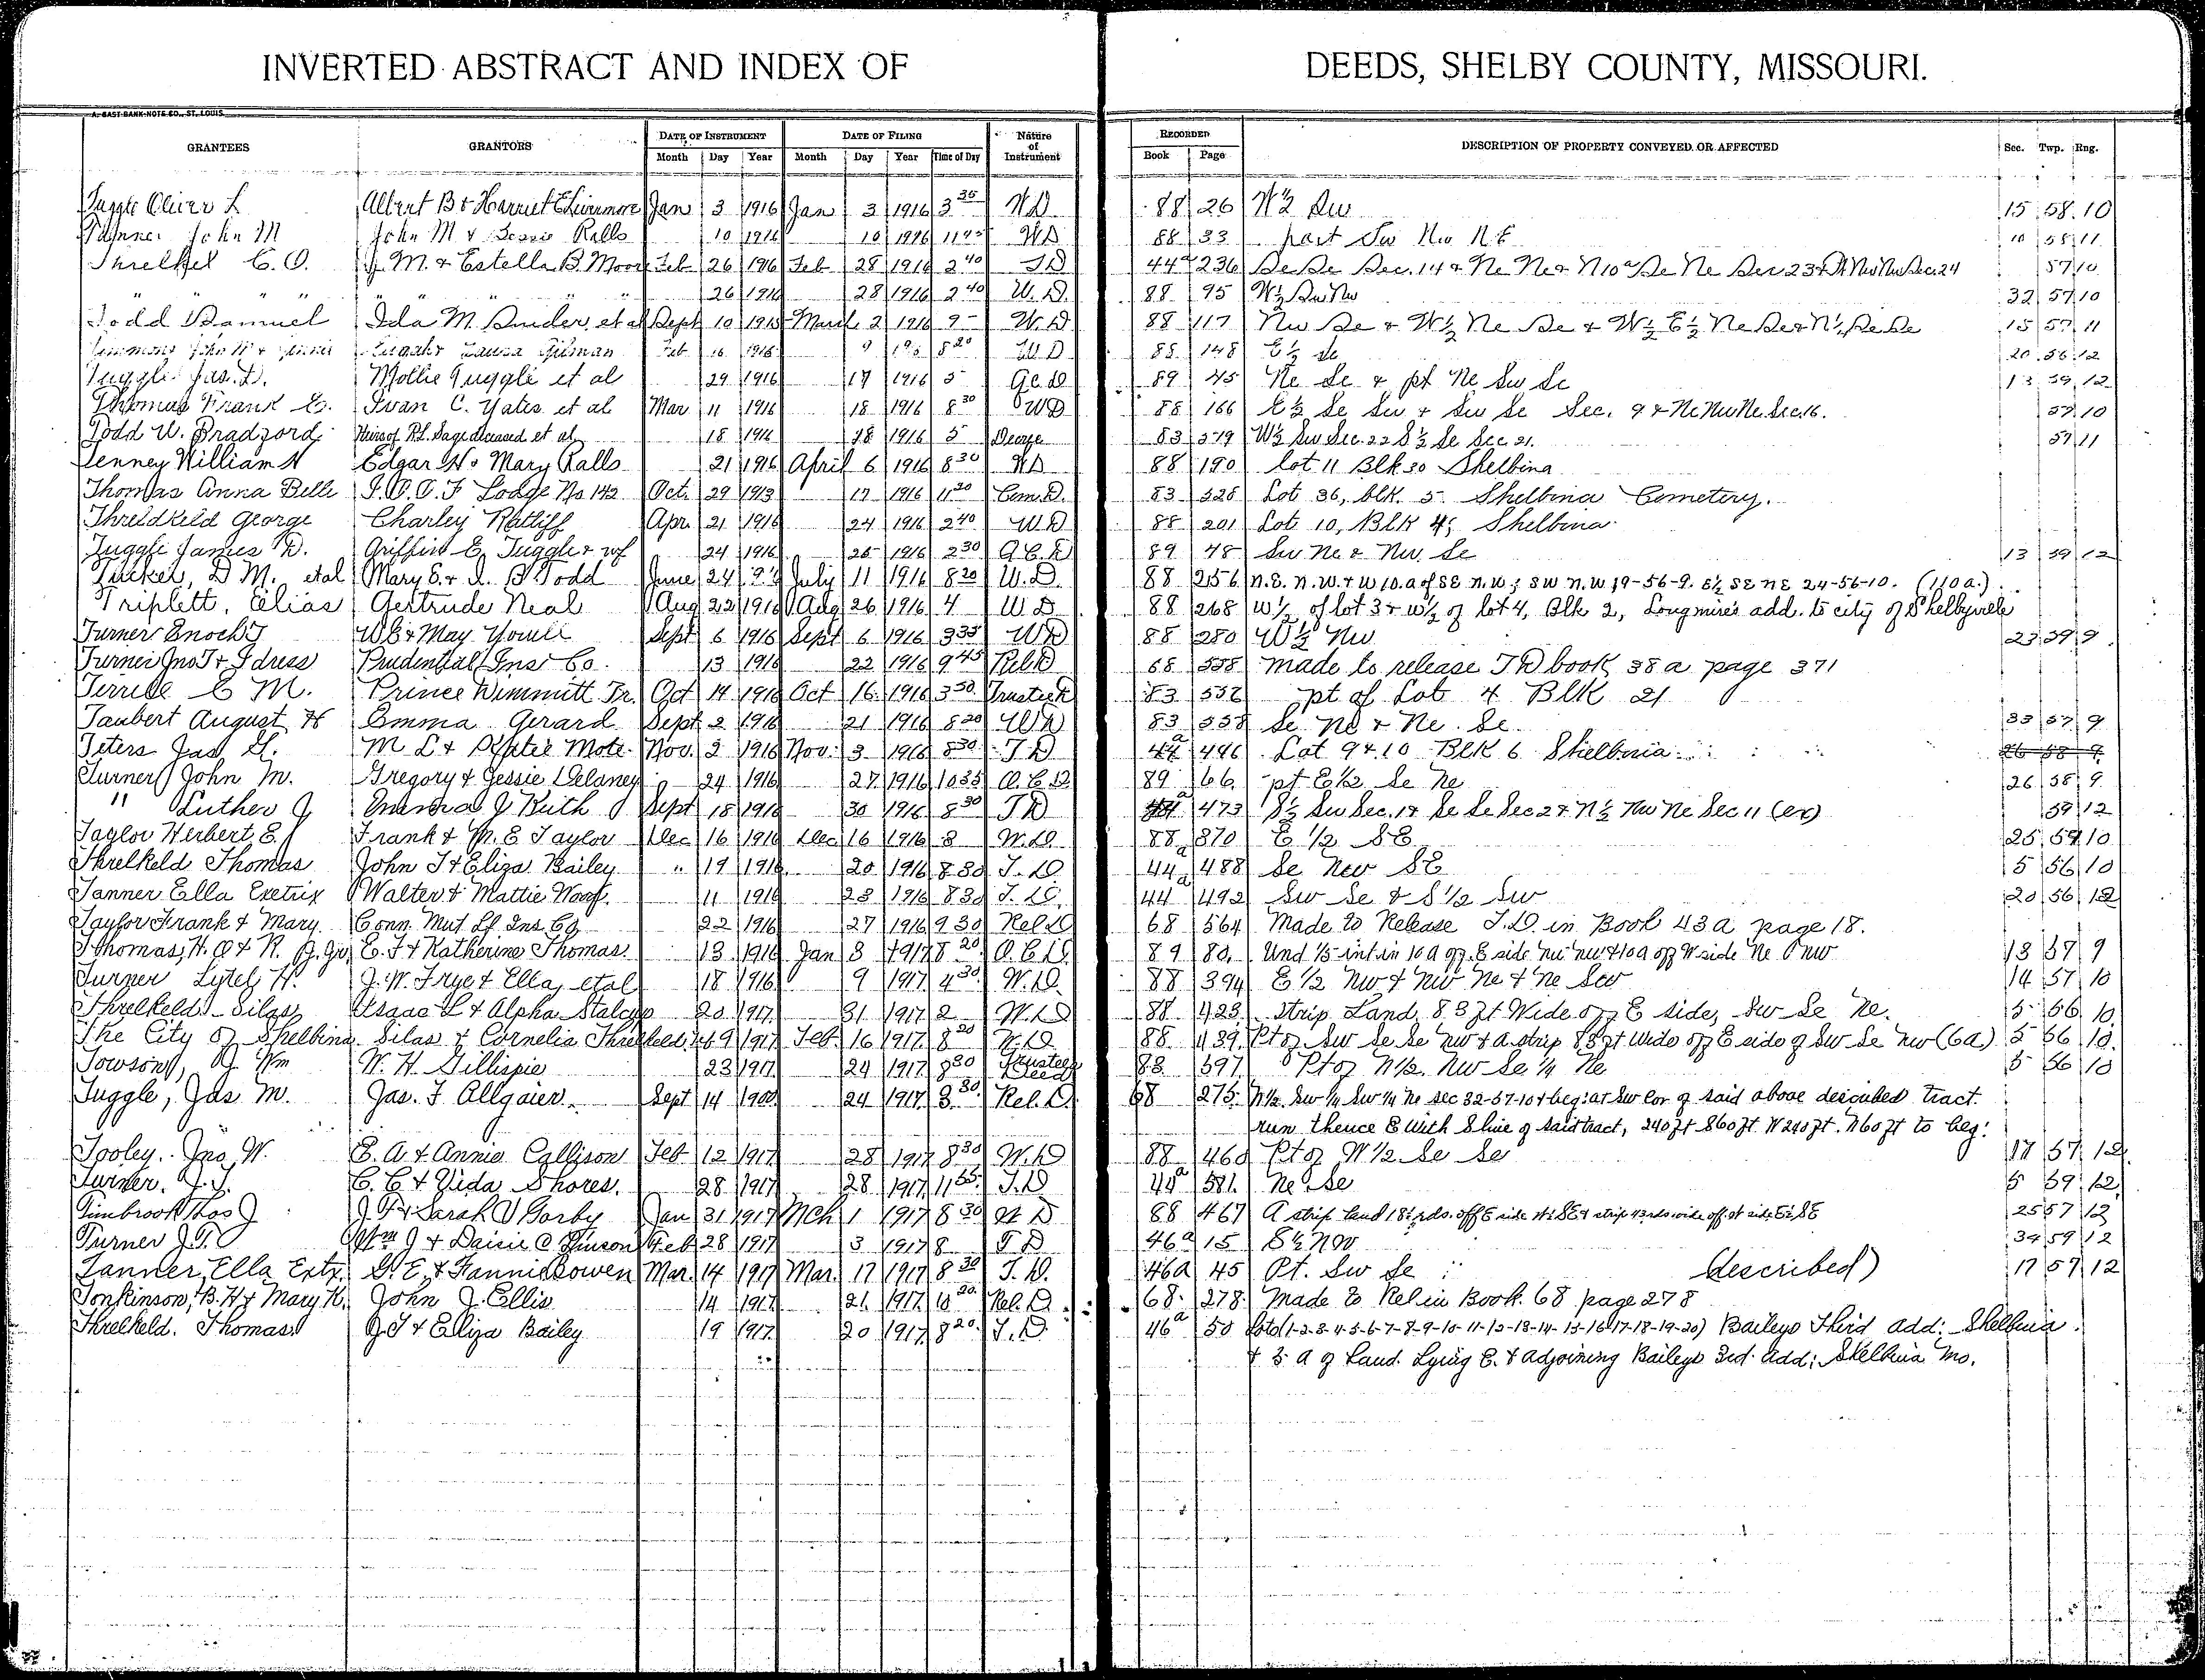 INVERTED ABSTRACT AND INDEX OF DEEDS, SHELBY COUNTY, MISSOURI.
GRANTEES GRANTORS DATE OF INSTRUMENT DATE OF FILING Nature of Instrument RECORDED DESCRIPTION OF PROPERTY CONVEYED OR AFFECTED Sec. Twp. Rng.
Month Day Year Month Day Year Time of Day Book Page
Tuggle Oliver L Albert B & Harriet E Livinmore Jan 3 1916 Jan 3 1916 3 35 WD 88 26 W½ Sw 15 58 10
John M John M & Jessie Ralls 10 1916 10 1916 WD 88 33 part Sw Nw NE 10 58 11
Threlkel C. O. J. M. & Estella B. Moore Feb 26 1916 Feb 28 1916 2 40 TD 44a 236 Se Se Sec. 14 & Ne Ne & N 10a Se Ne Sec 23 & Nw Nw Sec. 24 57 10
" " " " " " 26 1916 28 1916 2 40 W. D. 88 95 W½ Sw Nw 32 57 10
Todd Samuel Ida M. Snider, et al Sept 10 1915 March 2 1916 9 - W. D 88 117 Nw Se & W½ Ne Se & W½ E½ Ne Se & N½ Se Se 15 57 11
Laura Gilman Feb 16 1916 9 8 20 W D 88 148 E½ Se 20 56 12
Tuggle Jas. D. Mollie Tuggle et al 29 1916 17 1916 5 Qc. D 89 45 Ne Se & pt Ne Sw Se 13 59 12
Thomas Frank E. Ivan C. Yates et al Mar 11 1916 18 1916 8 30 WD 88 166 E½ Se Sw & Sw Se Sec. 9 & Ne Nw Ne Sec. 16. 57 10
Todd W. Bradford Heirs of P.L. Sage deceased et al 18 1916 18 1916 5 Decree 83 379 W½ Sw Sec. 22 S½ Se Sec 21. 57 11
Tenney William N Edgar N & Mary Ralls 21 1916 April 6 1916 8 30 WD 88 190 lot 11 Blk 30 Shelbina
Thomas Anna Belle I. O. O. F Lodge No 142 Oct. 29 1913 17 1916 11 20 Cem. D. 83 528 Lot 36, blk. 5. Shelbina Cemetery.
Threldkeld George Charley Ratliff Apr. 21 1916 24 1916 2 40 WD 88 201 Lot 10, Blk 4, Shelbina
Tuggle James D. Griffin E. Tuggle & wf 24 1916 25 1916 2 30 Q. C. D 89 48 Sw Ne & Nw Se 13 59 12
Tucker, D M. et al Mary E. & Todd June 24 July 11 1916 8 20 W. D. 88 256 N.E. N.W. & W 10.a of SE N.W; SW N.W 19-56-9. E½ SE NE 24-56-10. (110 a.)
Triplett, Elias Gertrude Neal Aug 22 1916 Aug 26 1916 4 W D 88 268 W½ of lot 3 & W½ of lot 4, Blk 2, Longmires add. to city of Shelbyville
Turner Enoch J W E & May Yowell Sept 6 1916 Sept 6 1916 3 35 WD 88 280 W½ Nw 23 59 9
Turner Jno T & Idress Prudential Ins Co. 13 1916 22 1916 9 45 Rel D 68 558 made to release TD book 38 a page 371
Terrill C M. Prince Dimmitt Tr. Oct 14 1916 Oct 16 1916 3 30 Trustee D 83 532 pt of Lot 4 Blk 21
Taubert August H Emma Gerard Sept 2 1916 21 1916 8 20 WD 83 558 Se Ne & Ne Se 33 57 9
Teters Jas M L & Mote Nov. 3 1916 Nov. 3 1916 8 30 T D 44a 446 Lot 9 & 10 Blk 6 Shelbina 26 58 9
Turner John M. Gregory & Jessie Delaney 24 1916 27 1916 10 35 Q. C. D 89 66 pt E½ Se Ne 26 58 9
" Luther J Ruth Sept 18 1916 30 1916 8 30 T D 44a 473 S½ Sw Sec. 1 & Se Se Sec 2 & N½ Nw Ne Sec 11 (ex) 59 12
Taylor Herbert E. Frank & M. E Taylor Dec 16 1916 Dec 16 1916 8 W. D. 88 370 E ½ SE 25 59 10
Threlkeld Thomas John T & Eliza Bailey " 19 1916 20 1916 8 30 T. D 44a 488 Se New SE 5 56 10
Tanner Ella Exetrix Walter & Mattie Wood 11 1916 23 1916 8 30 T. D. 44a 492 Sw Se & S ½ Sw 20 56 12
Taylor Frank & Mary Conn. Mut Lf Ins Co 22 1916 27 1916 9 30 Rel D 68 564 Made to Release T.D. in Book 43 a page 18.
Thomas, H. A & R. J. Jr. E. T & Katherine Thomas 13 1916 Jan 3 1917 8 20 Q. C. D. 89 80 Und 1/5 int in 10 a off E side nw nw & 10 a off W side Ne nw 13 57 9
Turner Lytel H. J. W. Frye & Ella, et al 18 1916 9 1917 4 30 W. D. 88 394 E ½ Nw & Nw Ne & Ne Sw 14 57 10
Threlkeld Silas Isaac L & Alpha Stalcup 20 1917 31 1917 2 W. D 88 423 Strip Land 83 ft Wide off E side, Sw Se Ne. 5 56 10
The City of Shelbina Silas & Cornelia Threlkeld Feb 9 1917 Feb. 16 1917 8 20 W. D 88 439 Pt of Sw Se Se nw & a strip 83 ft Wide off E side of Sw Se nw (6a) 5 56 10
Towson, J. Wm W. H. Gillispie 23 1917 24 1917 8 30 Trustees Deed 83 597 Pt of N½. Nw Se ¼ Ne 5 56 10
Tuggle, Jas M. Jas. F Allgaier Sept 14 24 1917 8 30 Rel. D. 68 275 N½ Sw ¼ Sw ¼ Ne sec 32-57-10 & beg: at Sw Cor of said above described tract.
run thence E With S line of said tract, 240 ft S 60 ft. W 240 ft. N 60 ft to beg:
Tooley. Jno. W. E. A & Annie Callison Feb 12 1917 28 1917 8 30 W. D 88 460 Pt of W ½ Se Se 17 57 12
Turner. J. T. C. C & Vida Shores. 28 1917 28 1917 11 55 T. D 44a 581 Ne Se 5 59 12
Timbrook Thos J J. T & Sarah J Gorby Jan 31 1917 Mch 1 1917 8 30 W D 88 467 A strip land 18½ rds. off E side W½ SE & strip 43 rds. wide off W side E½ SE 25 57 12
Turner J. T. Wm J & Daisie C Vinson Feb 28 1917 3 1917 8 T D 46a 15 S½ NW 34 59 12
Tanner, Ella Extx. G. E. & Fannie Bowen Mar. 14 1917 Mar. 17 1917 8 30 T. D. 46a 45 Pt. Sw Se (described) 17 57 12
Tonkinson, B. H & Mary K. John J. Ellis 14 1917 21 1917 10 20 Rel. D. 68 278 Made to Rel in Book 68 page 278
Threlkeld. Thomas J T & Eliza Bailey 19 1917 20 1917 8 20 T. D 46a 50 Lots (1-2-3-4-5-6-7-8-9-10-11-12-13-14-15-16-17-18-19-20) Baileys Third add: Shelbina
& 3 a of Land Lying E. & adjoining Baileys 3rd add: Shelbina Mo.